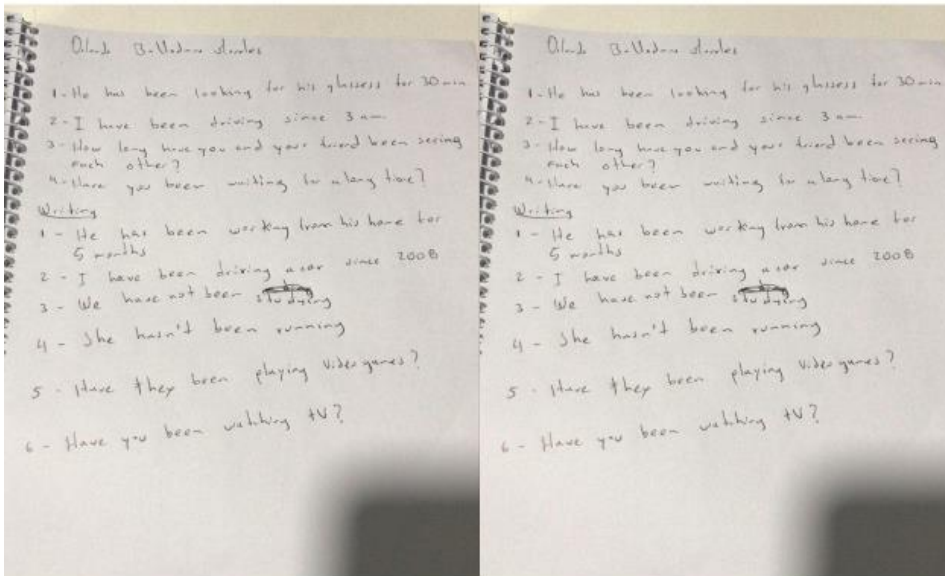 1 - He has been looking for his glassess for 30 min
2 - I have been driving since 3 am
3 - How long have you and your friend been seeing
each other?
4 - Have you been waiting for a long time?
Writing
1 - He has been working from his home for
5 months
2 - I have been driving a car since 2008
3 - We have not been studying
4 - She hasn't been running
5 - Have they been playing video games?
6 - Have you been watching tV?
1 - He has been looking for his glassess for 30 min
2 - I have been driving since 3 am
3 - How long have you and your friend been seeing
each other?
4 - Have you been waiting for a long time?
Writing
1 - He has been working from his home for
5 months
2 - I have been driving a car since 2008
3 - We have not been studying
4 - She hasn't been running
5 - Have they been playing video games?
6 - Have you been watching tV?